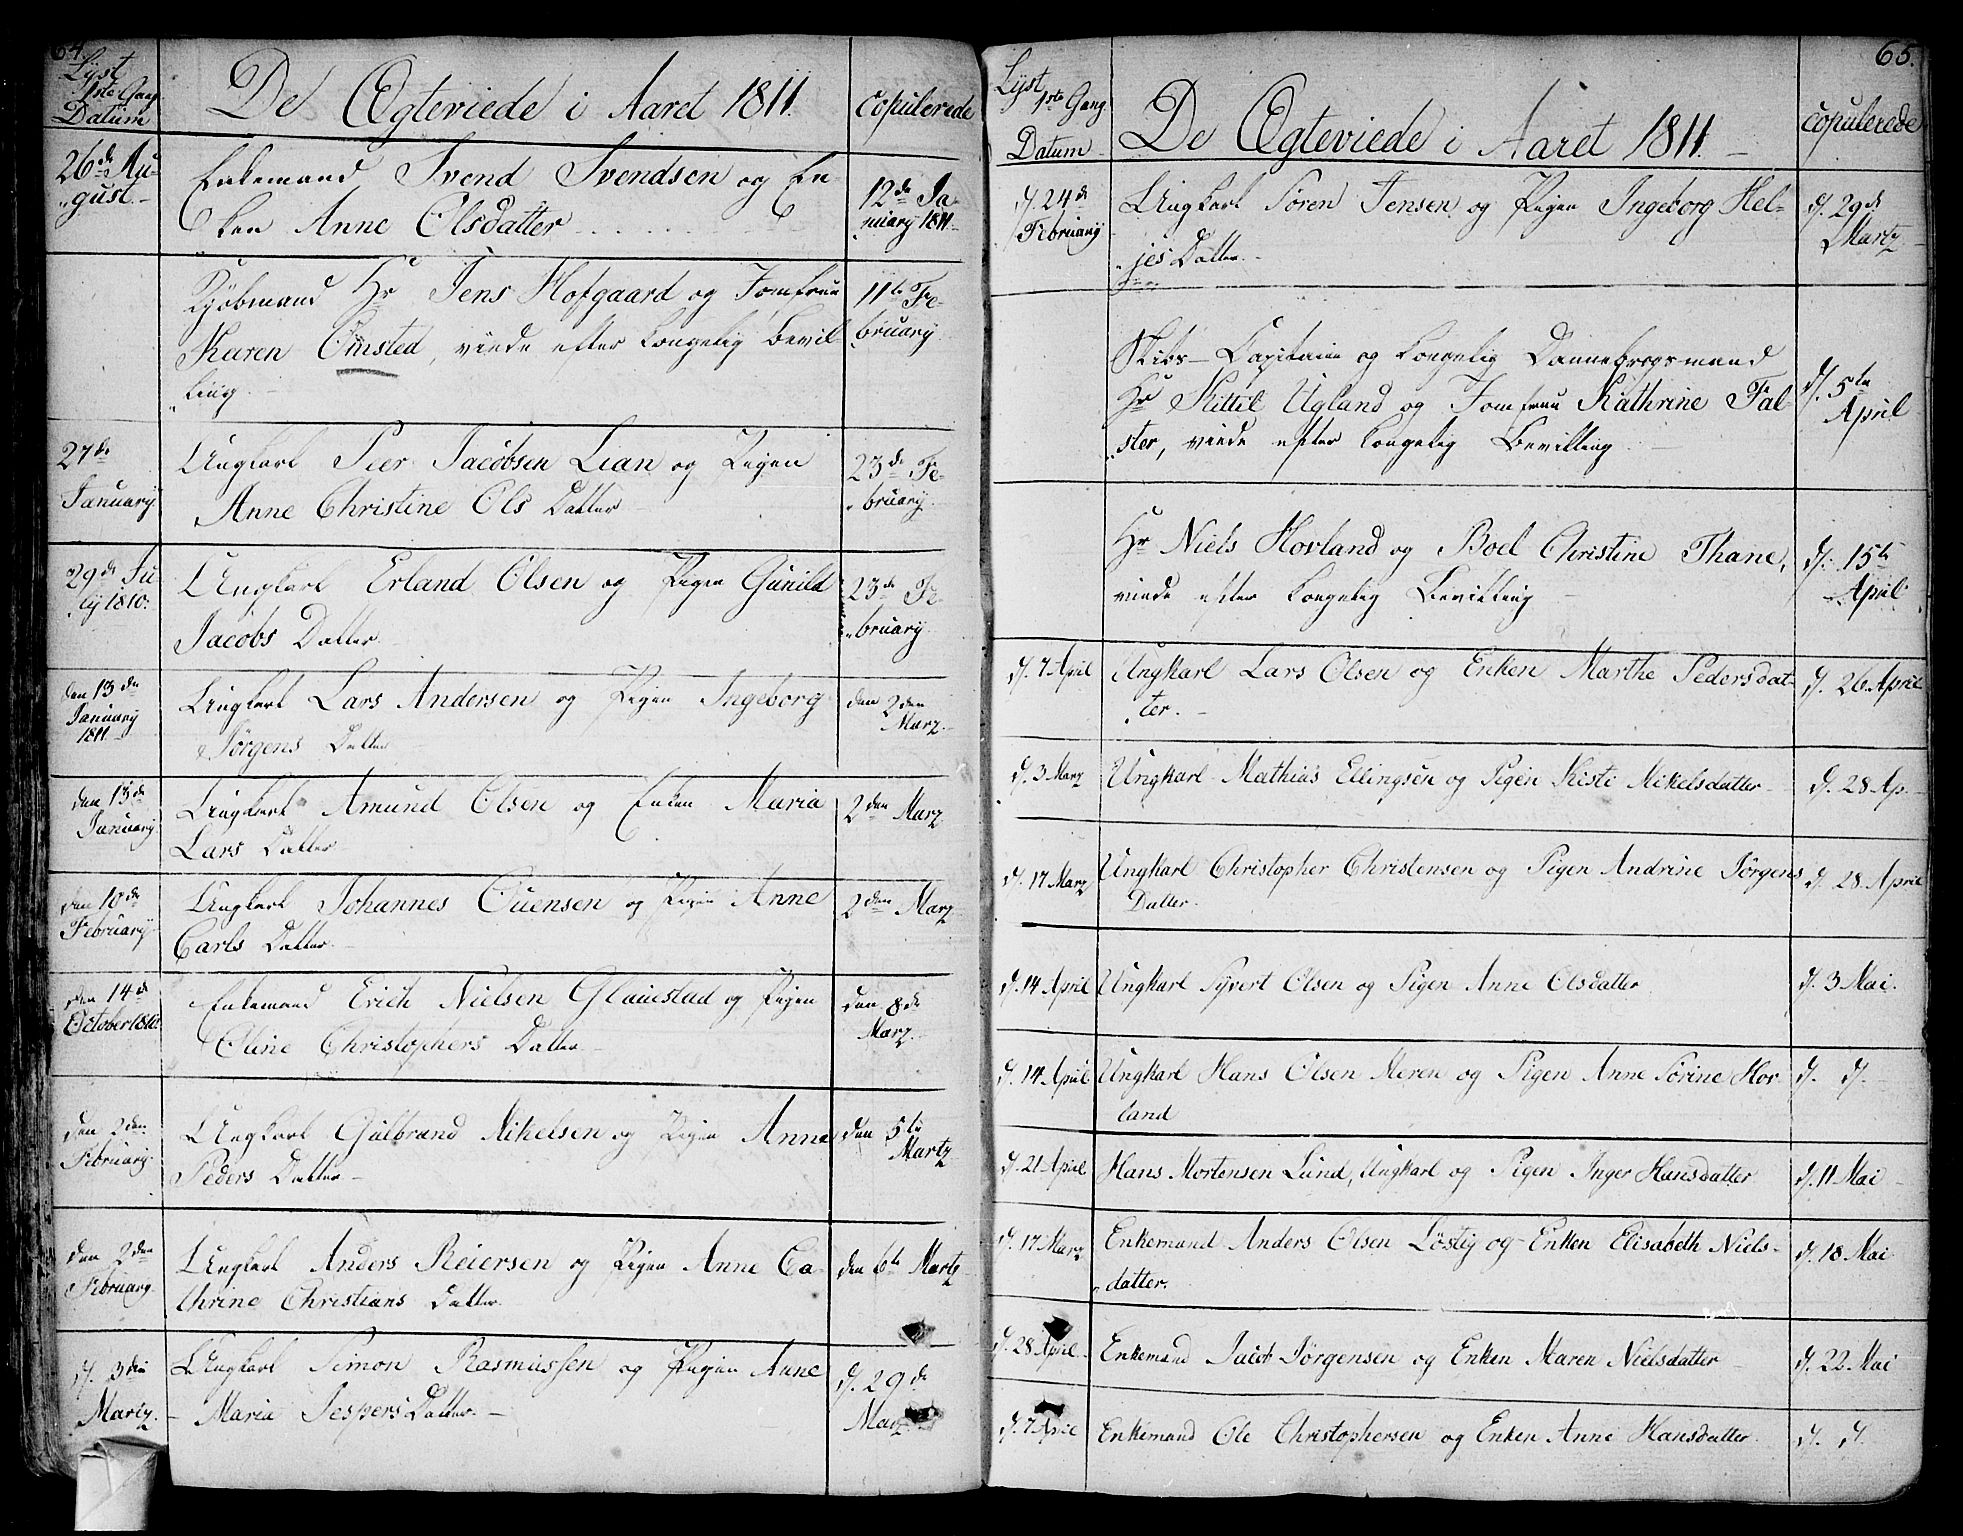 64.
Lÿst
1ste Gang
Datum
De Ægteviede i Aaret 1811.
copulerede
26de Au-
gust.
Enkemand Svend Svendsen og En-
ken Anne Olsdatter
12de Ja-
nuary 1811.
Kjøbmand Hr Jens Hofgaard og Jomfrue
Karen Omsted, viede efter kongelig Bevil-
ling.
11te Fe-
bruary
27de
January.
Ungkarl Peer Jacobsen Lian og Pigen
Anne Christine Ols Datter
23de Fe-
bruary.
29de Ju
ly 1810.
Ungkarl Erland Olsen og Pigen Gunild
Jacobs Datter
23de Fe-
bruary.
den 13de
January
1811.
Ungkarl Lars Andersen og Pigen Ingeborg
Jørgens Datter
den 2den
Marz.
den 13de
January.
Ungkarl Amund Olsen og Enken Maria
Lars Datter
2den Marz
den 10de
February.
Ungkarl Johannes Ouensen og Pigen Anne
Carls Datter
2den Marz
den 14de
October 1810.
Enkemand Erich Nielsen og Pigen
Oline Christophers Datter
den 8de
Marz.
den 2den
February.
Ungkarl Gulbrand Mikelsen og Pigen Anne
Peders Datter
den 5te
Martz
den 2den
February.
Ungkarl Anders Reiersen og Pigen Anne Ca-
thrine Christians Datter
den 6te Martz
d. 3die
Martz.
Ungkarl Simon Rasmussen og Pigen Anne
Maria Jespers Datter.
d. 29de
Marz
65.
Lÿst
1ste Gang
Datum
De Ægteviede i Aaret 1811.
copulerede
d. 24de
February
Ungkarl Sören Jensen og Pigen Ingeborg Hel-
jes Datter.
d. 29de
Martz.
Skibs-Capitain og kongelig Dannebrogsmand
Hr Kittil Ugland og Jomfrue Kathrine Fal-
ster, viede efter kongelig Bevilling
d. 5te
April
Hr Niels Hovland og Boel Christine Thane,
viede efter kongelig Bevilling
d. 15te
April
d. 7 April
Ungkarl Lars Olsen og Enken Marthe Pedersdat-
ter.
d. 26 April
d. 3 Marz
Ungkarl Mathias Ellingsen og Pigen Kisti Mikelsdatter
d. 28 Ap.
d. 17 Marz
Ungkarl Christopher Christensen og Pigen Andrine Jörgens
Datter.
d. 28 April
d. 14 April
Ungkarl Syvert Olsen og Pigen Anne Olsdatter
d. 3 Mai.
d. 14 April
Ungkarl Hans Olsen Meren og Pigen Anne Sörine Hov
land
d. d.
d. 21 April
Hans Mortensen Lund, Ungkarl og Pigen Inger Hansdatter
d. 11 Mai
d. 17 Marz
Enkemand Anders Olsen Löstig og Enken Elisabeth Niels-
datter.
d. 18 Mai
d. 28 April.
Enkemand Jacob Jörgensen og Enken Maren Nielsdatter
d. 22 Mai
d. 7 April
Enkemand Ole Christophersen og Enken Anne Hansdatter
d. d.